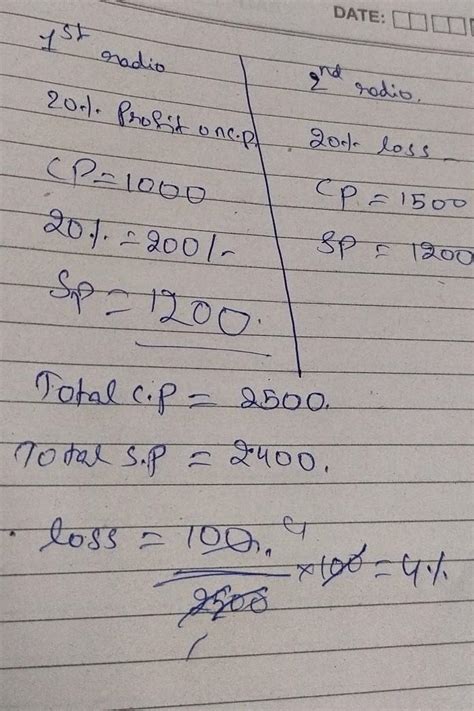 DATE:
1st radio
20% Profit on c.p.
CP = 1000
20% = 200/-
S.p = 1200.
2nd radio.
20% loss -
CP. = 1500
SP = 1200
Total c.p = 2500.
Total s.p = 2400.
loss = 100. 4
2500 ×100 = 4%